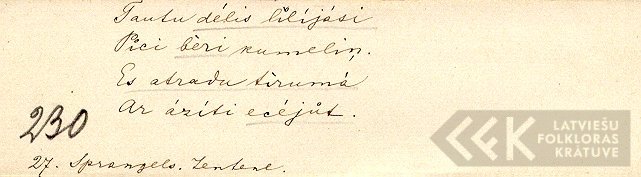 Tautu dēlis lïlijási
Pïci bèri kumelin̦.
Es atradu tïrumá
Ar ázíti ecéjůt.
230
27. Sprangels. Zentene.
LATVIEŠU
FOLKLORAS
KRĀTUVE